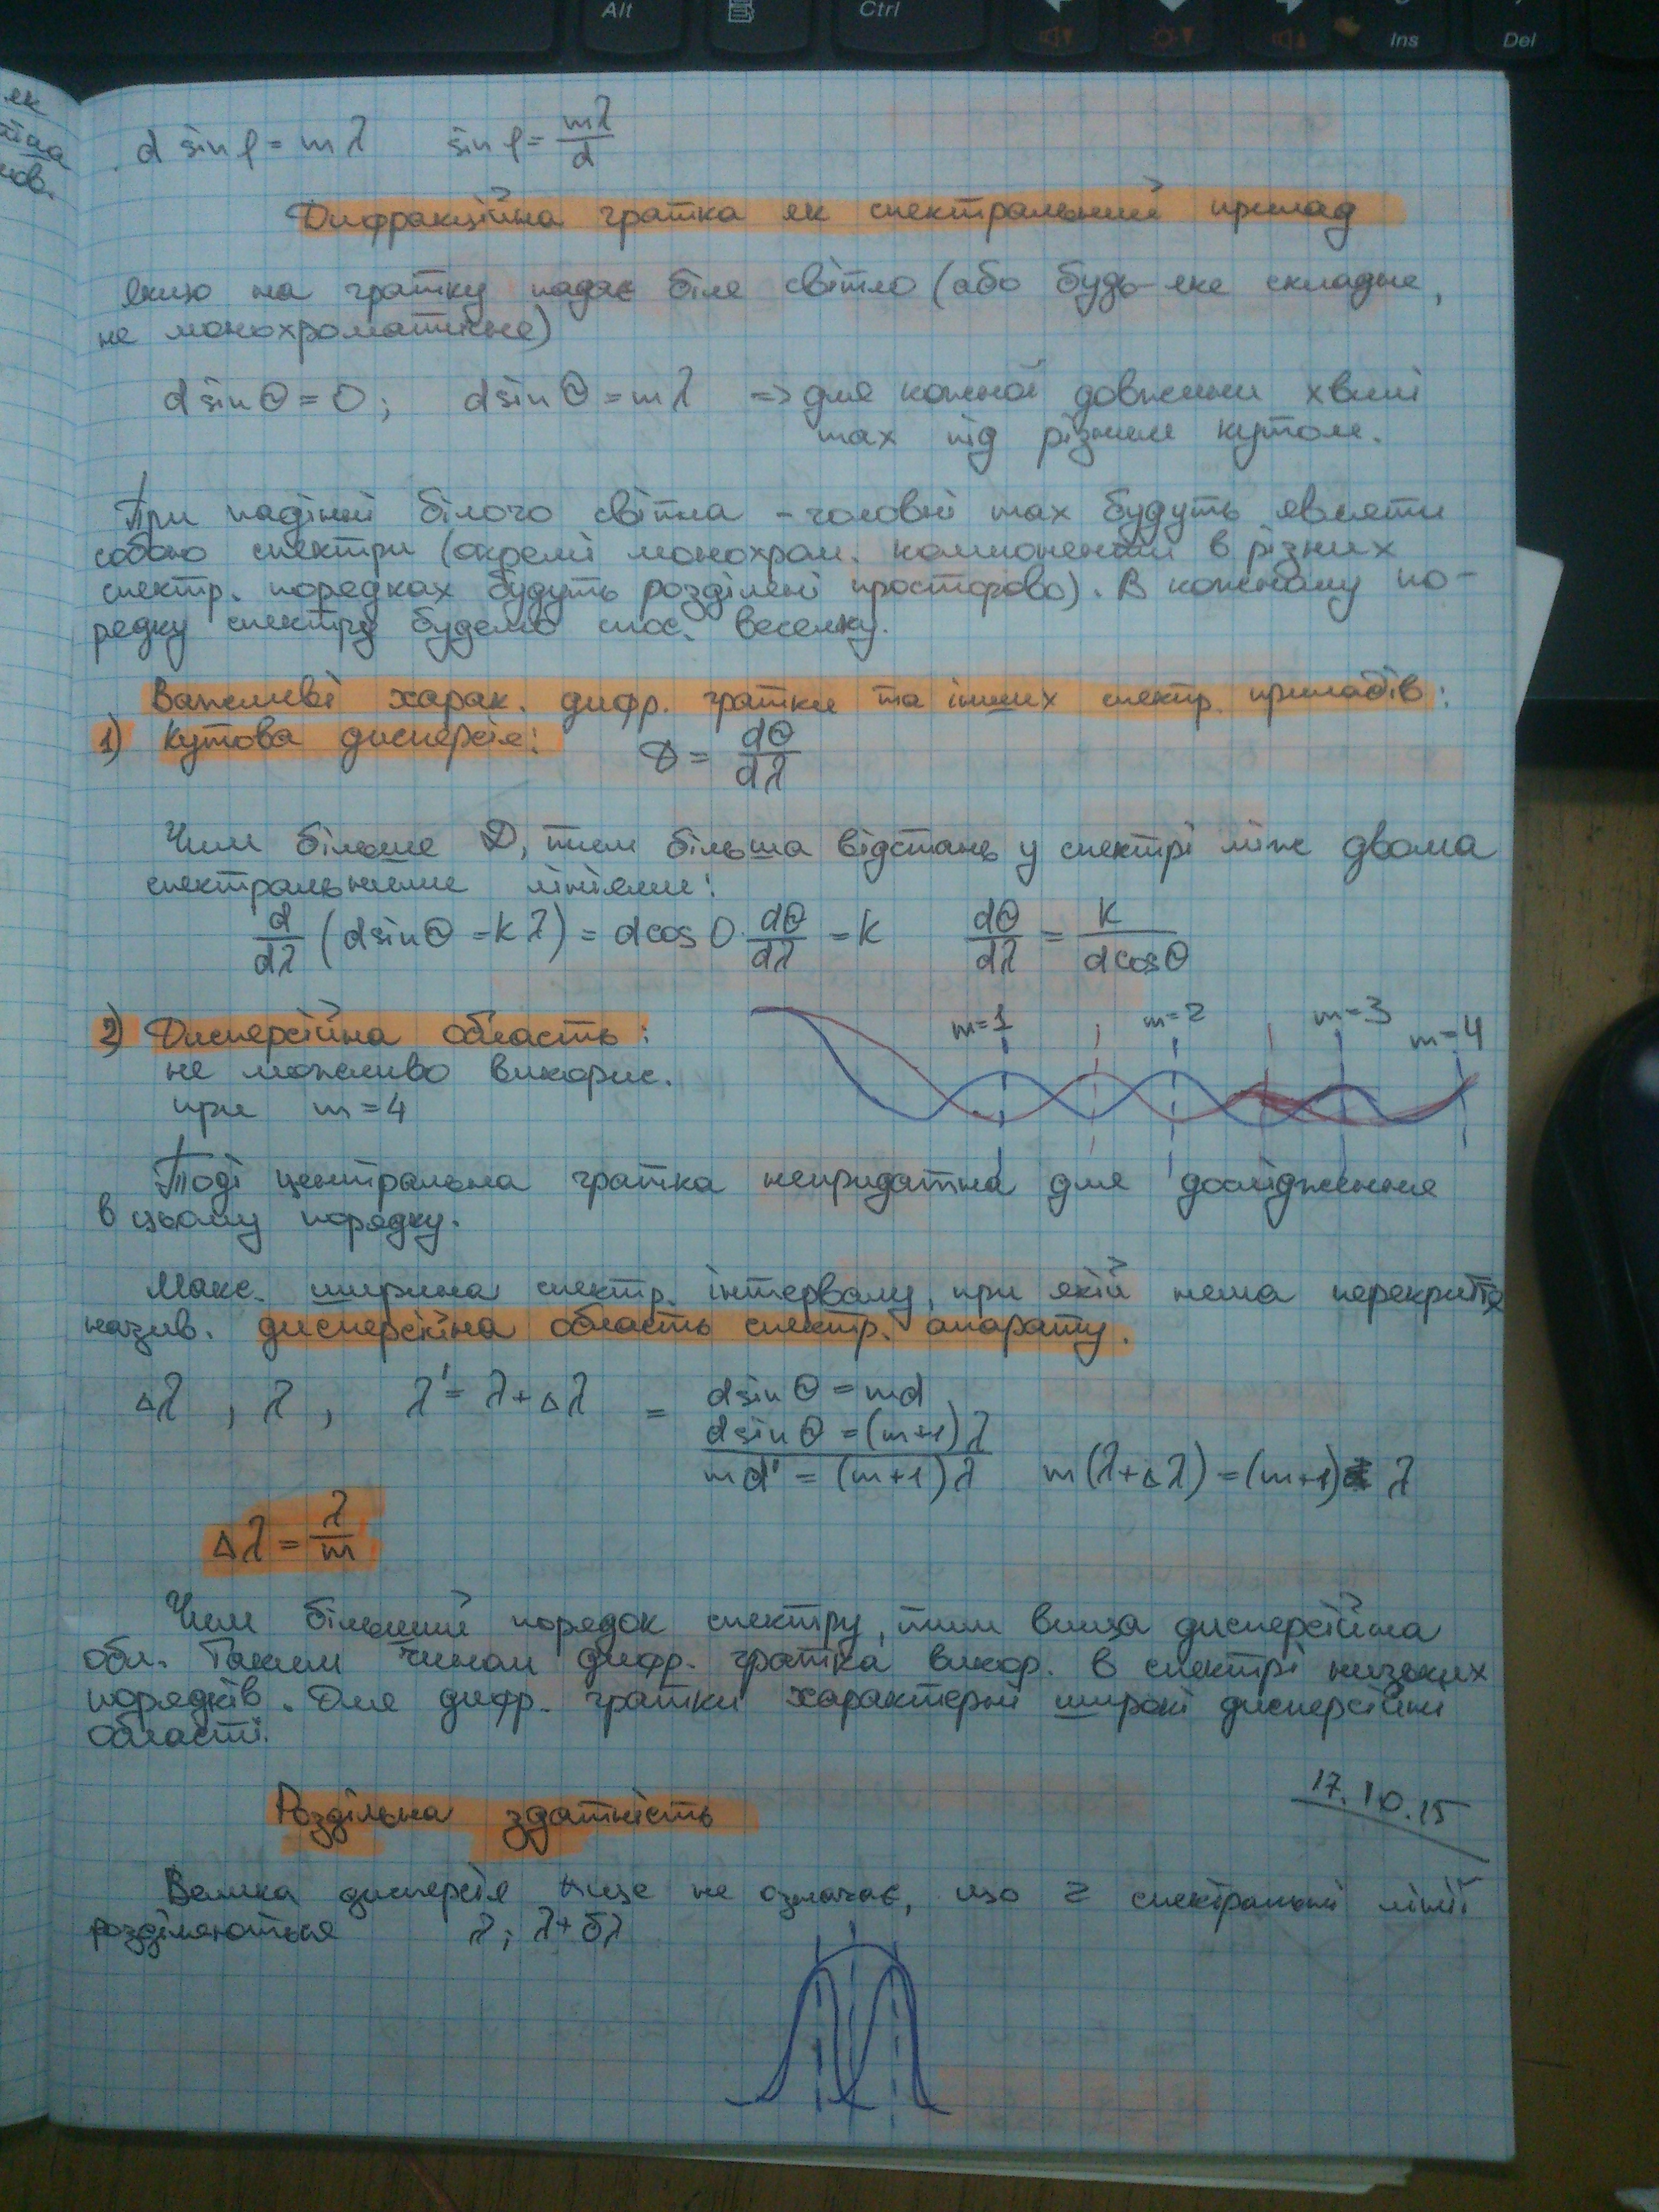 d sin φ = mλ   sin φ = mλ/d
Дифракційна гратка як спектральний прилад
Якщо на гратку падає біле світло (або будь-яке складне,
не монохроматичне)
d sin θ = 0;   d sin θ = mλ => для кожної довжини хвилі
max під різним кутом.
При падінні білого світла - головні max будуть являти
собою спектри (окремі монохром. компоненти в різних
спектр. порядках будуть розділені просторово). В кожному по-
рядку спектру будемо спос. веселку.
Важливі харак. дифр. гратки та інших спектр. приладів:
1) Кутова дисперсія:   D = dθ/dλ
Чим більше D, тим більша відстань у спектрі між двома
спектральними лініями:
d/dλ (d sin θ = kλ) = d cos θ · dθ/dλ = k   dθ/dλ = k/(d cos θ)
2) Дисперсійна область:
не можливо викорис.
при m = 4
m=1   m=2   m=3   m=4
Тоді центральна гратка непридатна для дослідження
в цьому порядку.
Макс. ширина спектр. інтервалу, при якій нема перекриття
назив. дисперсійна область спектр. апарату.
Δλ, λ, λ' = λ + Δλ =   d sin θ = md
d sin θ = (m+1)λ
mλ' = (m+1)λ   m(λ+Δλ) = (m+1)λ
Δλ = λ/m
Чим більший порядок спектру, тим вища дисперсійна
обл. Таким чином дифр. гратка викор. в спектрі низьких
порядків. Для дифр. гратки характерні широкі дисперсійні
області.
17.10.15
Роздільна здатність
Велика дисперсія ще не означає, що 2 спектральні лінії
розділяються   λ; λ+δλ